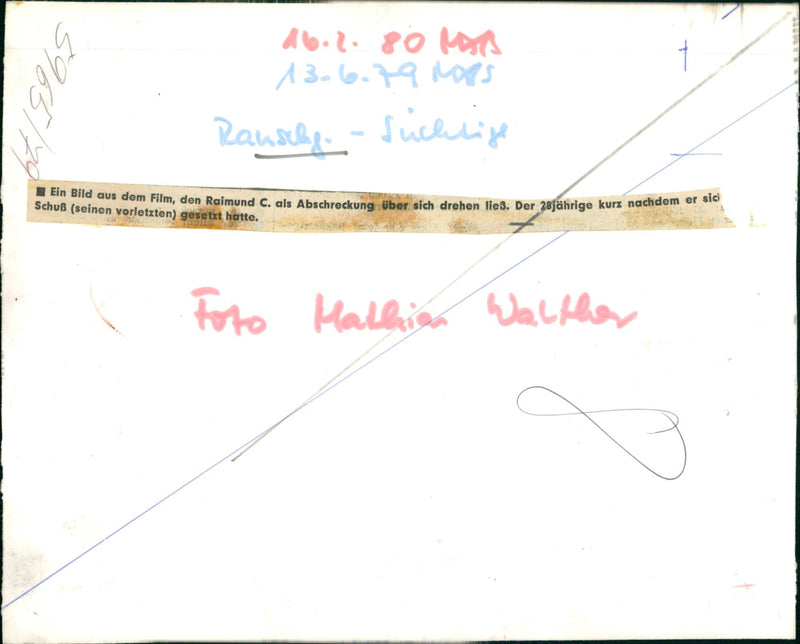 16.2. 80 MOPS
13.6.79 MOPS
5965/79
Rauschg. - Süchtige
■ Ein Bild aus dem Film, den Raimund C. als Abschreckung über sich drehen ließ. Der 28jährige kurz nachdem er sich
Schuß (seinen vorletzten) gesetzt hatte.
Foto Mathias Walther